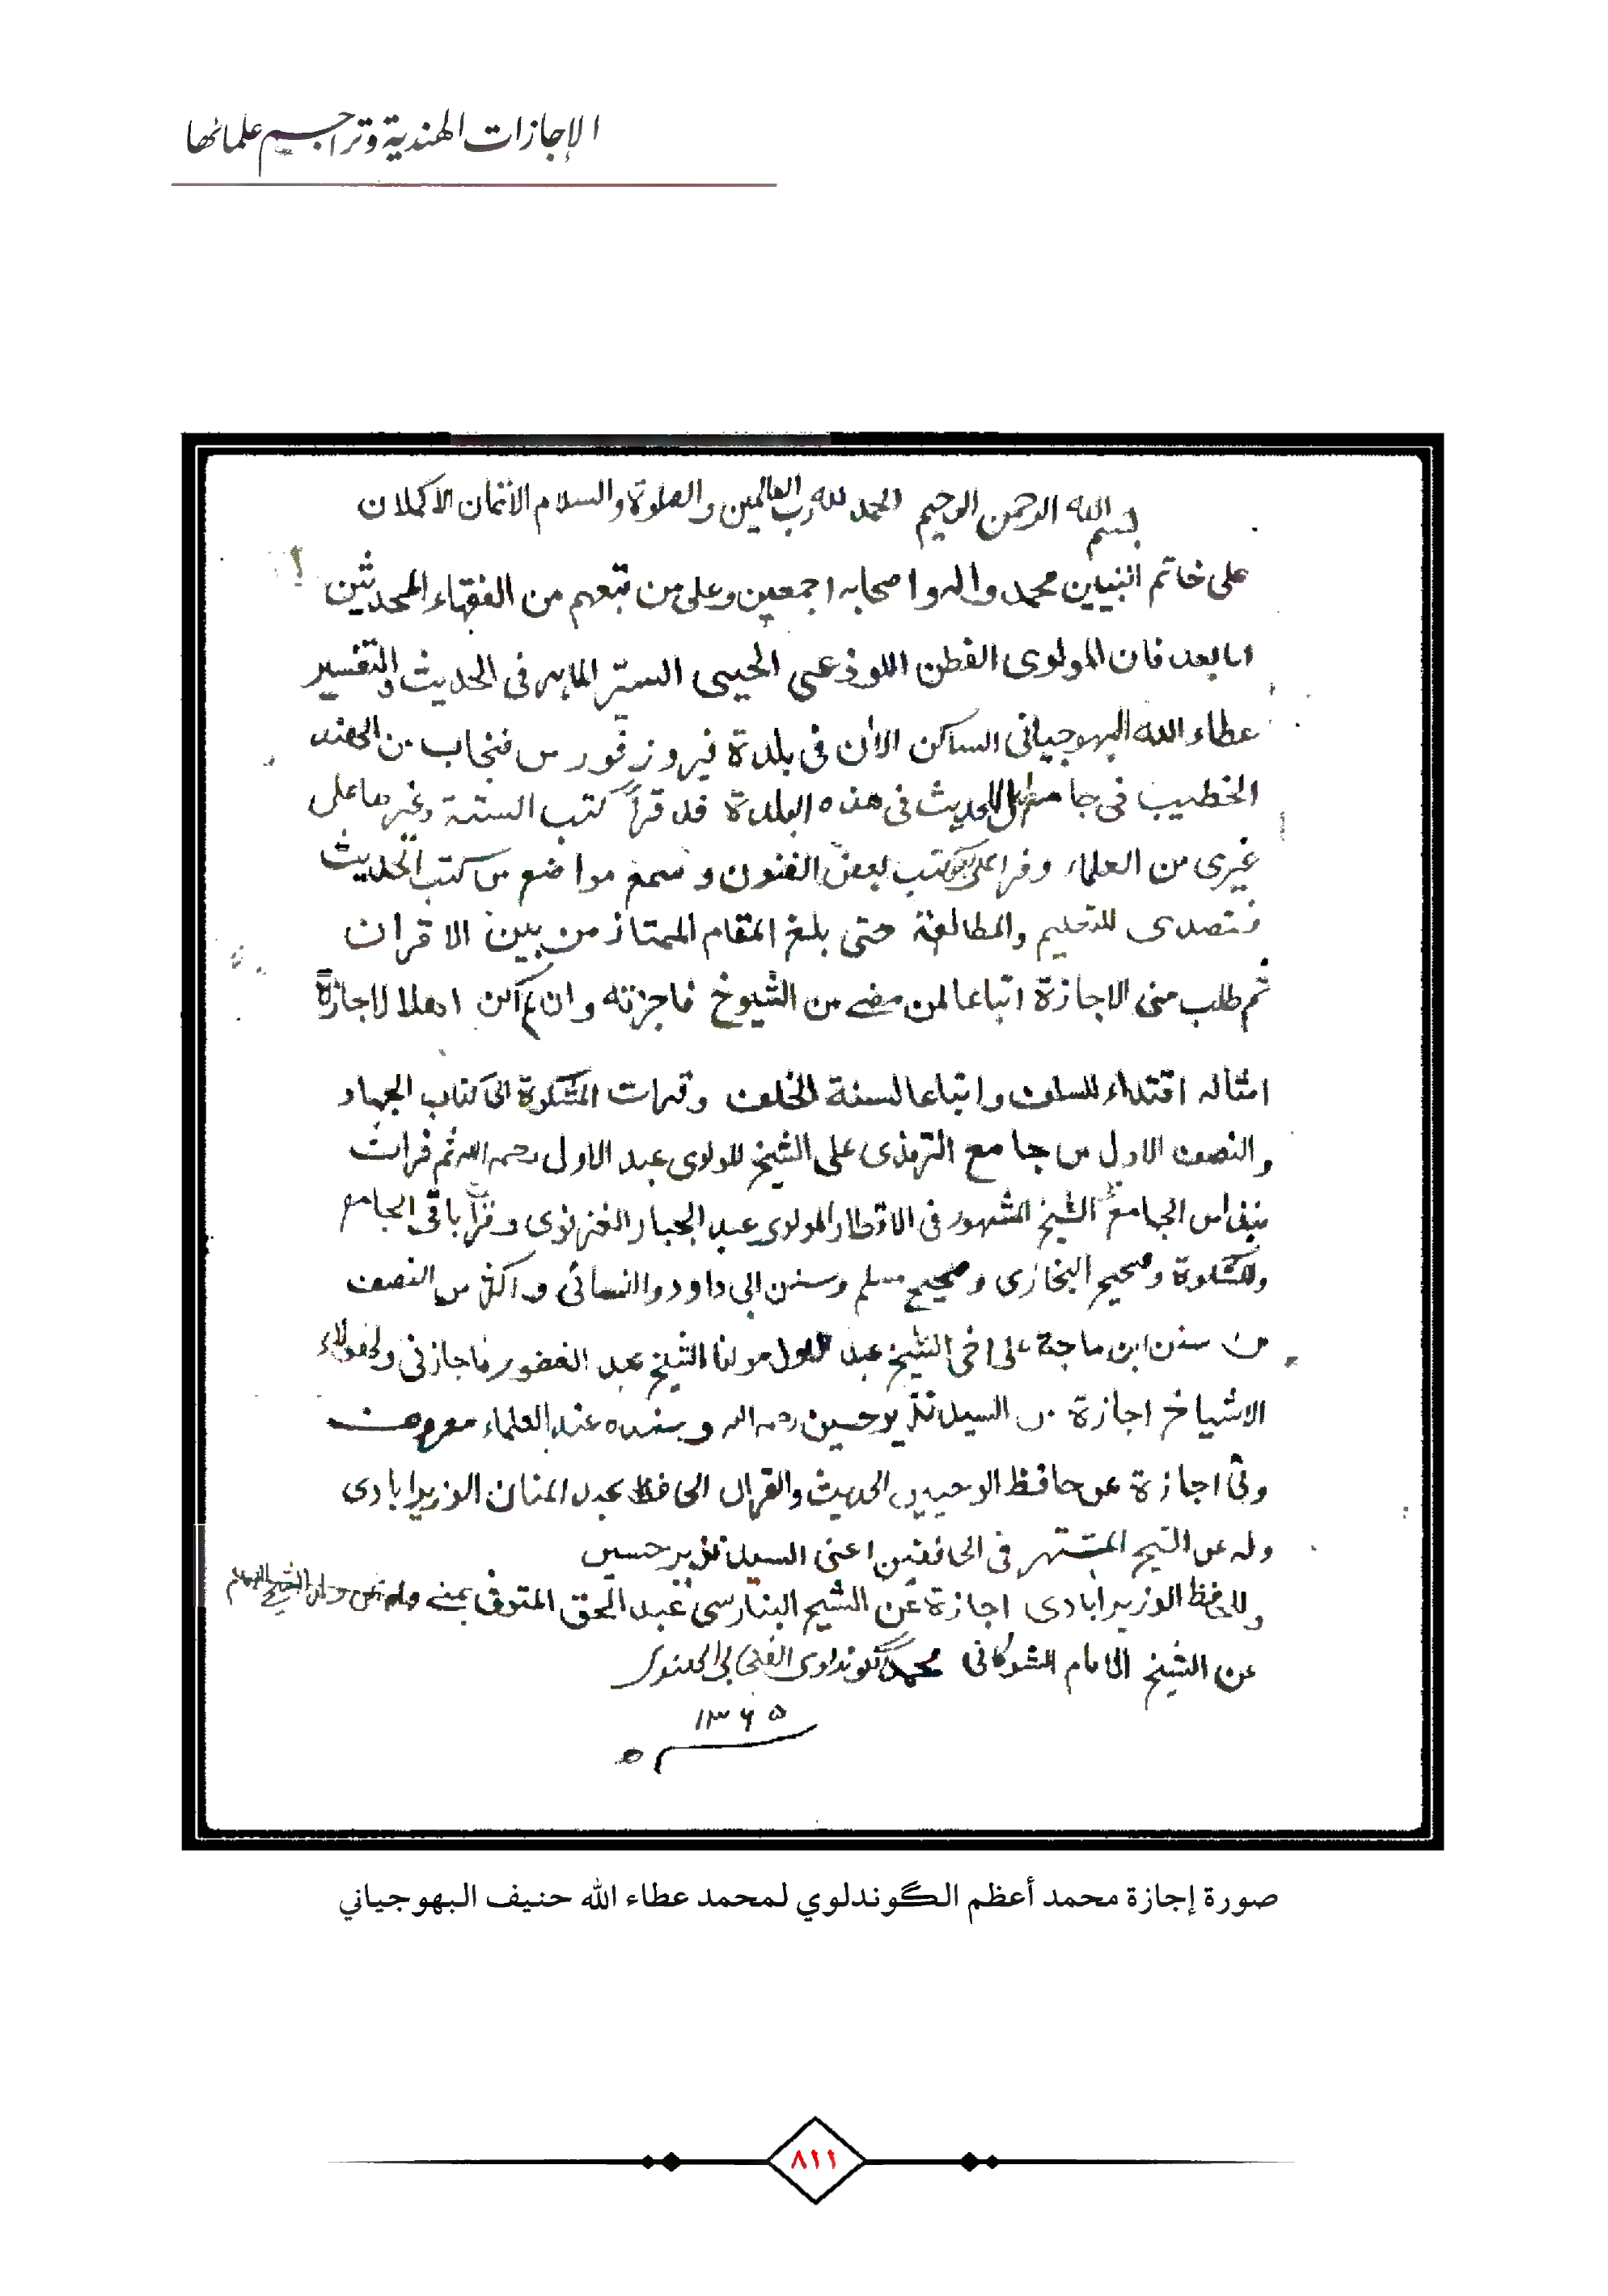 الإجازات الهندية وتراجم علمائها
بسم الله الرحمن الرحيم الحمد لله رب العالمين والصلوة والسلام الاتمان الاكملان
على خاتم النبيين محمد واله واصحابه اجمعين وعلى من تبعهم من الفقهاء المحدثين
اما بعد فان المولوى الفطن اللوذعى الحيى الستر الماهر فى الحديث والتفسير
عطاء الله البهوجيانى الساكن الان فى بلدة فيروزفور من فنجاب من الهند
الخطيب فى جامع اهل الحديث فى هذه البلدة قد قرأ كتب الستة وغيرها على
غيرى من العلماء وقرا على كتب بعض الفنون و سمع مواضع من كتب الحديث
فتصدى للتعليم والمطالعة حتى بلغ المقام الممتاز من بين الاقران
ثم طلب منى الاجازة اتباعا لمن مضى من الشيوخ فاجزته وان لم اكن اهلا لاجازة
امثاله اقتداء للسلف واتباعا لسنة الخلف وقرات المشكوة الى كتاب الجهاد
والنصف الاول من جامع الترمذى على الشيخ المولوى عبد الاول رحمه الله ثم قرات
من الجامع الشيخ المشهور فى الاقطار المولوى عبد الجبار الغزنوى وقرأ باقى الجامع
والمشكوة وصحيح البخارى وصحيح مسلم وسنن ابى داود والنسائى واكثر من النصف
من سنن ابن ماجة على اخى الشيخ عبد الاول مولنا الشيخ عبد الغفور فاجازنى ولهولاء
الاشياخ اجازة من السيد نذير حسين رحمه الله وسنده عند العلماء معروف
ولى اجازة عن حافظ الوحيين الحديث والقران الحافظ عبد المنان الوزيرابادى
وله عن الشيخ المشتهر فى الخافقين اعنى السيد نذير حسين
وللحافظ الوزيرابادى اجازة عن الشيخ البنارسى عبد الحق المتوفى بمنى
عن الشيخ الامام الشوكانى محمد گوندلوى الفنجابى الهندى
١٣٦٥
ه
صورة إجازة محمد أعظم الگوندلوي لمحمد عطاء الله حنيف البهوجياني
٨١١